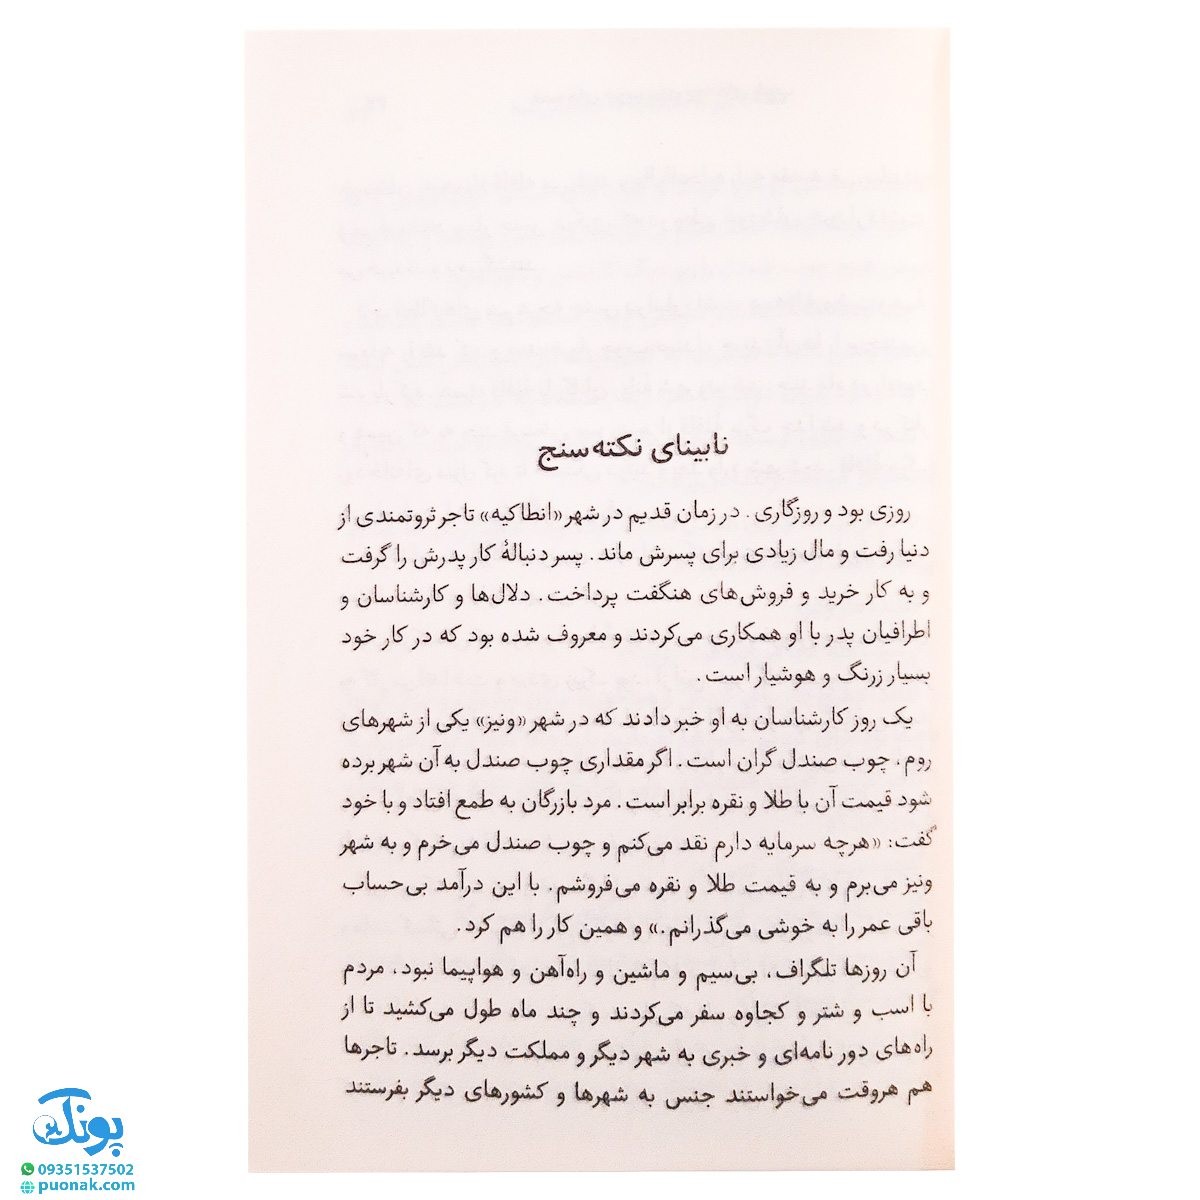 نابینای نکته‌سنج
روزی بود و روزگاری. در زمان قدیم در شهر «انطاکیه» تاجر ثروتمندی از
دنیا رفت و مال زیادی برای پسرش ماند. پسر دنبالهٔ کار پدرش را گرفت
و به کار خرید و فروش‌های هنگفت پرداخت. دلال‌ها و کارشناسان و
اطرافیان پدر با او همکاری می‌کردند و معروف شده بود که در کار خود
بسیار زرنگ و هوشیار است.
یک روز کارشناسان به او خبر دادند که در شهر «ونیز» یکی از شهرهای
روم، چوب صندل گران است. اگر مقداری چوب صندل به آن شهر برده
شود قیمت آن با طلا و نقره برابر است. مرد بازرگان به طمع افتاد و با خود
گفت: «هرچه سرمایه دارم نقد می‌کنم و چوب صندل می‌خرم و به شهر
ونیز می‌برم و به قیمت طلا و نقره می‌فروشم. با این درآمد بی‌حساب
باقی عمر را به خوشی می‌گذرانم.» و همین کار را هم کرد.
آن روزها تلگراف، بی‌سیم و ماشین و راه‌آهن و هواپیما نبود، مردم
با اسب و شتر و کجاوه سفر می‌کردند و چند ماه طول می‌کشید تا از
راه‌های دور نامه‌ای و خبری به شهر دیگر و مملکت دیگر برسد. تاجرها
هم هروقت می‌خواستند جنس به شهرها و کشورهای دیگر بفرستند
پونک
09351537502
puonak.com